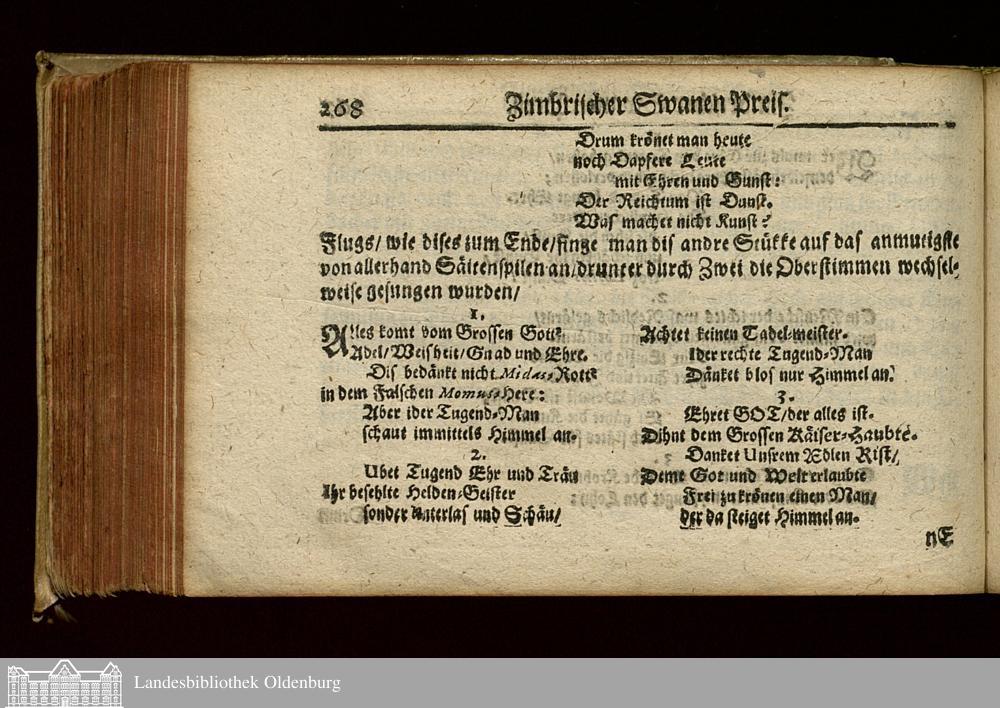 268 Zimbrischer Swanen Preis.
Drum krönet man heute
noch Dapfere Leute
mit Ehren und Gunst:
Der Reichtum ist Dunst.
Was machet nicht Kunst?
Flugs/ wie dises zum Ende/ finge man dis andre Stükke auf das anmutigste
von allerhand Säitenspilen an/ drunter durch Zwei die Oberstimmen wechsel-
weise gesungen wurden/
1.
Alles komt vom Grossen Gott
Adel/ Weisheit/ Gnad und Ehre.
Dis bedänkt nicht Midas-Rott
in dem Falschen Momus-Here:
Aber ider Tugend-Man
schaut immittels Himmel an.
2.
Ubet Tugend Ehr und Träu
Ihr besehlte Helden-Geister
sonder Unterlas und Schäu/
Achtet keinen Tadel-meister.
Ider rechte Tugend-Man
Dänket blos nur Himmel an.
3.
Ehret GOT/ der alles ist.
Dihnt dem Grossen Käiser-Haubte.
Danket Unsrem Ædlen Rist/
Deme Got und Welt erlaubte
Frei zu krönen einen Man/
der da steiget Himmel an.
nE
Landesbibliothek Oldenburg